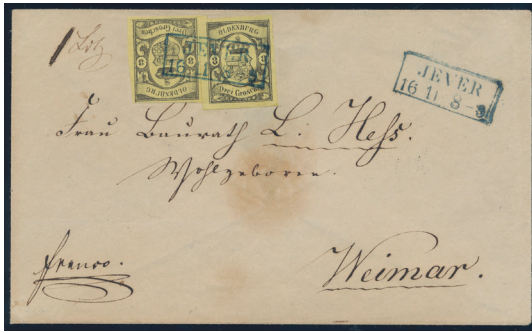 1 Loth
OLDENBURG
Drei Groschen
3 3
OLDENBURG
Drei Groschen
3 3
JEVER
16 11
JEVER
16 11. 8-9
Frau Baurath L. Hess.
Wohlgeboren.
franco.
Weimar.